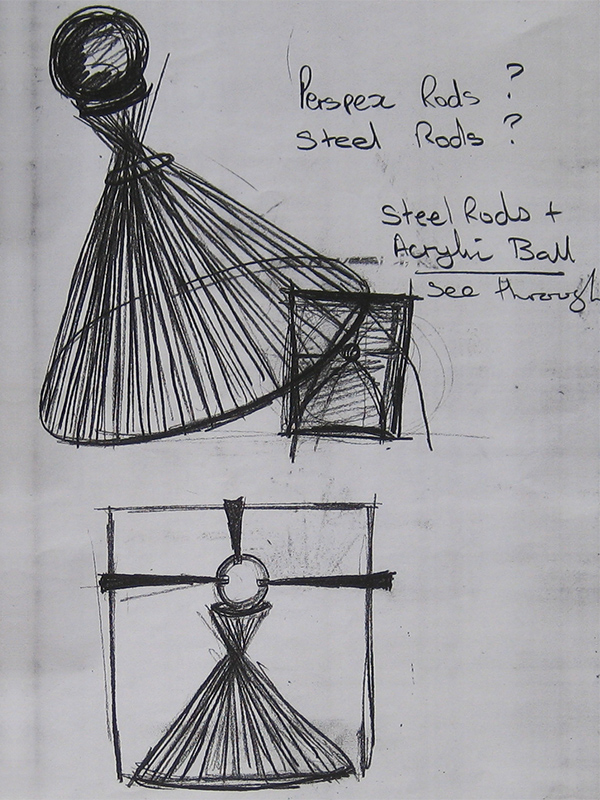 Perspex Rods ?
Steel Rods ?
Steel Rods +
Acrylic Ball
see through